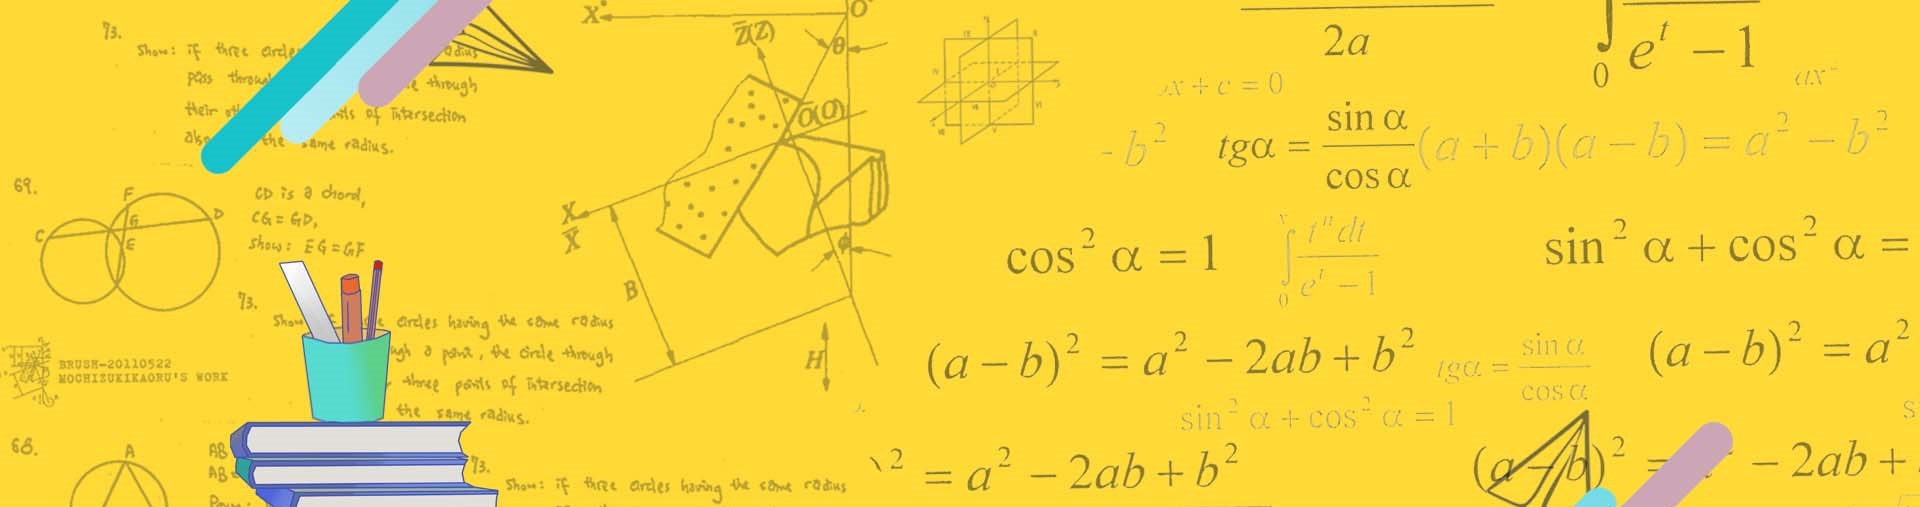 73.
Show: if three circles
radius
pass through
through
their
of intersection
also
the same radius.
69.
F
G
D
C
E
CD is a chord,
CG = GD,
Show: EG = GF
73.
circles having the same radius
a point, the circle through
three points of intersection
the same radius.
BRUSH-20110522
MOCHIZUKIKAORU'S WORK
68.
A
AB
AB
73.
Show: if three circles having the same radius
X
O
Z̅(Z)
θ
O̅(O)
X
X̅
B
ϕ
H
2a
0
e^t − 1
x + c = 0
ax²
- b²
tgα = sin α / cos α
(a + b)(a − b) = a² − b²
cos² α = 1
∫ t^n dt / e^t − 1
0
sin² α + cos² α =
(a − b)² = a² − 2ab + b²
tgα = sin α / cos α
(a − b)² = a²
sin² α + cos² α = 1
² = a² − 2ab + b²
(a − b)² =
− 2ab +